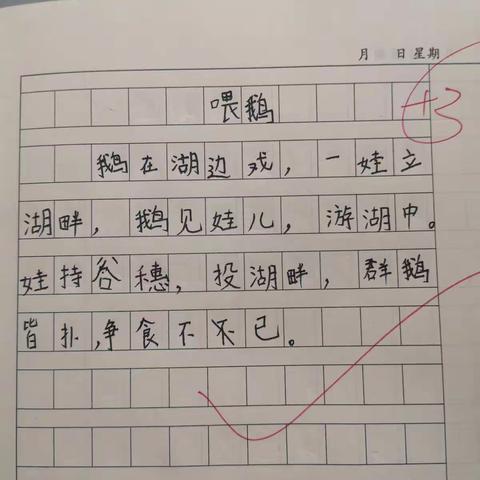 月 日 星期
喂鹅
+3
鹅在湖边戏，一娃立
湖畔，鹅见娃儿，游湖中。
娃持谷穗，投湖畔，群鹅
皆扑，争食不不已。